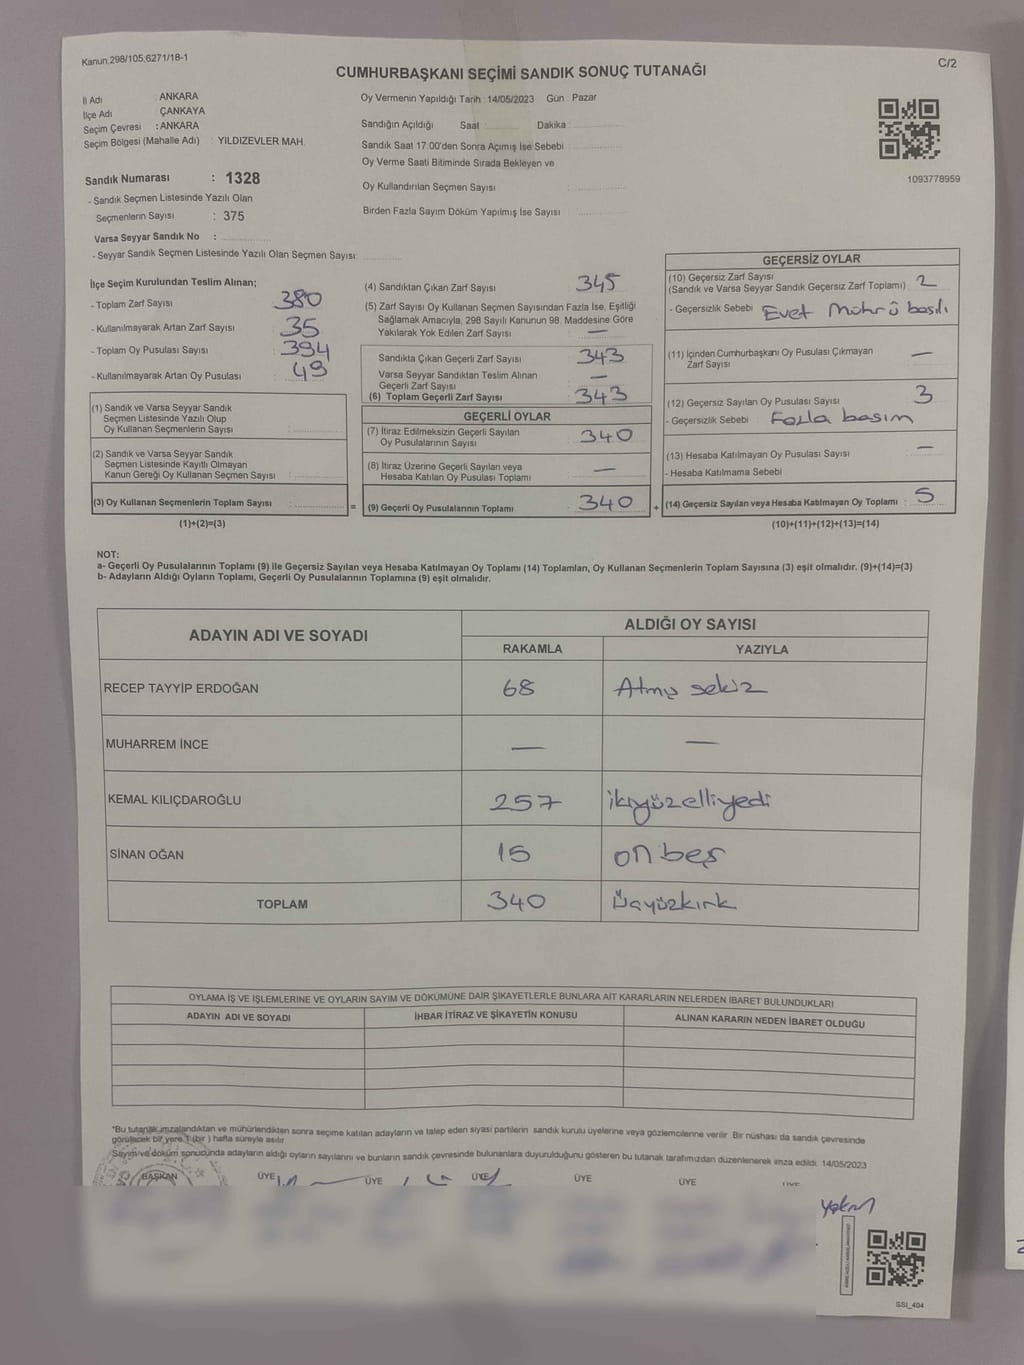 Kanun.298/105;6271/18-1
C/2
CUMHURBAŞKANI SEÇİMİ SANDIK SONUÇ TUTANAĞI
İl Adı : ANKARA
İlçe Adı : ÇANKAYA
Seçim Çevresi : ANKARA
Seçim Bölgesi (Mahalle Adı) : YILDIZEVLER MAH.
Sandık Numarası : 1328
- Sandık Seçmen Listesinde Yazılı Olan
Seçmenlerin Sayısı : 375
Varsa Seyyar Sandık No :
- Seyyar Sandık Seçmen Listesinde Yazılı Olan Seçmen Sayısı:
Oy Vermenin Yapıldığı Tarih : 14/05/2023 Gün : Pazar
Sandığın Açıldığı Saat Dakika :
Sandık Saat 17:00'den Sonra Açımış İse Sebebi
Oy Verme Saati Bitiminde Sırada Bekleyen ve
Oy Kullandırılan Seçmen Sayısı :
Birden Fazla Sayım Döküm Yapılmış İse Sayısı :
1093778959
İlçe Seçim Kurulundan Teslim Alınan;
- Toplam Zarf Sayısı : 380
- Kullanılmayarak Artan Zarf Sayısı : 35
- Toplam Oy Pusulası Sayısı : 394
- Kullanılmayarak Artan Oy Pusulası : 49
(1) Sandık ve Varsa Seyyar Sandık
Seçmen Listesinde Yazılı Olup
Oy Kullanan Seçmenlerin Sayısı :
(2) Sandık ve Varsa Seyyar Sandık
Seçmen Listesinde Kayıtlı Olmayan
Kanun Gereği Oy Kullanan Seçmen Sayısı :
(3) Oy Kullanan Seçmenlerin Toplam Sayısı :
(1)+(2)=(3)
(4) Sandıktan Çıkan Zarf Sayısı : 345
(5) Zarf Sayısı Oy Kullanan Seçmen Sayısından Fazla İse, Eşitliği
Sağlamak Amacıyla, 298 Sayılı Kanunun 98. Maddesine Göre
Yakılarak Yok Edilen Zarf Sayısı : —
Sandıkta Çıkan Geçerli Zarf Sayısı : 343
Varsa Seyyar Sandıktan Teslim Alınan
Geçerli Zarf Sayısı : —
(6) Toplam Geçerli Zarf Sayısı : 343
GEÇERLİ OYLAR
(7) İtiraz Edilmeksizin Geçerli Sayılan
Oy Pusulalarının Sayısı : 340
(8) İtiraz Üzerine Geçerli Sayılan veya
Hesaba Katılan Oy Pusulası Toplamı : —
= (9) Geçerli Oy Pusulalarının Toplamı : 340
GEÇERSİZ OYLAR
(10) Geçersiz Zarf Sayısı
(Sandık ve Varsa Seyyar Sandık Geçersiz Zarf Toplamı) : 2
- Geçersizlik Sebebi : Evet Mührü basılı
(11) İçinden Cumhurbaşkanı Oy Pusulası Çıkmayan
Zarf Sayısı : —
(12) Geçersiz Sayılan Oy Pusulası Sayısı : 3
- Geçersizlik Sebebi : Fazla basım
(13) Hesaba Katılmayan Oy Pusulası Sayısı : —
- Hesaba Katılmama Sebebi :
+ (14) Geçersiz Sayılan veya Hesaba Katılmayan Oy Toplamı : 5
(10)+(11)+(12)+(13)=(14)
NOT:
a- Geçerli Oy Pusulalarının Toplamı (9) ile Geçersiz Sayılan veya Hesaba Katılmayan Oy Toplamı (14) Toplamları, Oy Kullanan Seçmenlerin Toplam Sayısına (3) eşit olmalıdır. (9)+(14)=(3)
b- Adayların Aldığı Oyların Toplamı, Geçerli Oy Pusulalarının Toplamına (9) eşit olmalıdır.
ADAYIN ADI VE SOYADI
ALDIĞI OY SAYISI
RAKAMLA YAZIYLA
RECEP TAYYİP ERDOĞAN 68 Atmış sekiz
MUHARREM İNCE — —
KEMAL KILIÇDAROĞLU 257 ikiyüzelliyedi
SİNAN OĞAN 15 on beş
TOPLAM 340 Üçyüzkırk
OYLAMA İŞ VE İŞLEMLERİNE VE OYLARIN SAYIM VE DÖKÜMÜNE DAİR ŞİKAYETLERLE BUNLARA AİT KARARLARIN NELERDEN İBARET BULUNDUKLARI
ADAYIN ADI VE SOYADI İHBAR İTİRAZ VE ŞİKAYETİN KONUSU ALINAN KARARIN NEDEN İBARET OLDUĞU
*Bu tutanak imzalandıktan ve mühürlendikten sonra seçime katılan adayların ve talep eden siyasi partilerin sandık kurulu üyelerine veya gözlemcilerine verilir. Bir nüshası da sandık çevresinde
görülecek bir yere 1 (bir ) hafta süreyle asılır.
Sayım ve döküm sonucunda adayların aldığı oyların sayılarını ve bunların sandık çevresinde bulunanlara duyurulduğunu gösteren bu tutanak tarafımızdan düzenlenerek imza edildi. 14/05/2023
BAŞKAN ÜYE ÜYE ÜYE ÜYE ÜYE ÜYE
SSI_404